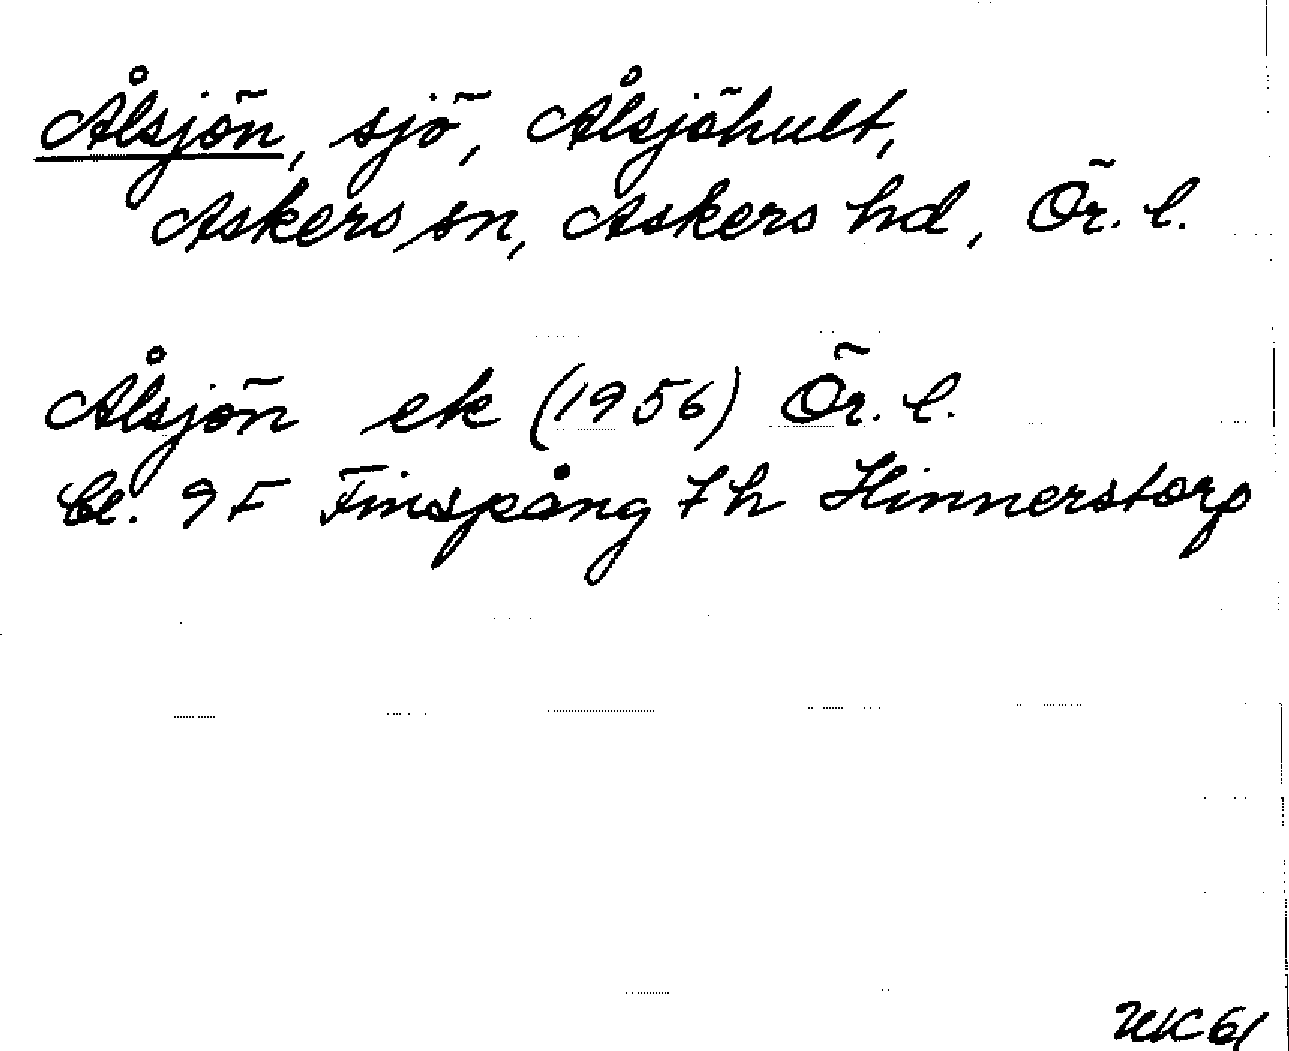 Ålsjön, sjö, Ålsjöhult,
Askers sn, Askers hd, Ör. l.
Ålsjön ek (1956) Ör. l.
bl. 9F Finspång 7h Hinnerstorp